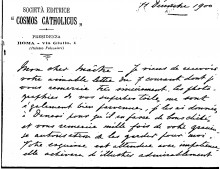 SOCIETÀ EDITRICE
" COSMOS CATHOLICUS "
PRESIDENZA
ROMA - Via Giulia, 1
(Palazzo Falconieri)
11 Dimanche 1900
Mon cher Maître - Je viens de recevoir
votre aimable lettre du 7 courant dont je
vous remercie très sincèrement. les photo
graphies de vos superbes toile, me sont
également bien parvenues, je les ai données
à Danesi pour qu'il en fasse de bons clichés,
et vous remercie mille fois de votre gracieuse
autorisation de les garder pour moi.
Votre esquisse est attendue avec impatience,
elle achèvera d'illustrer admirablement